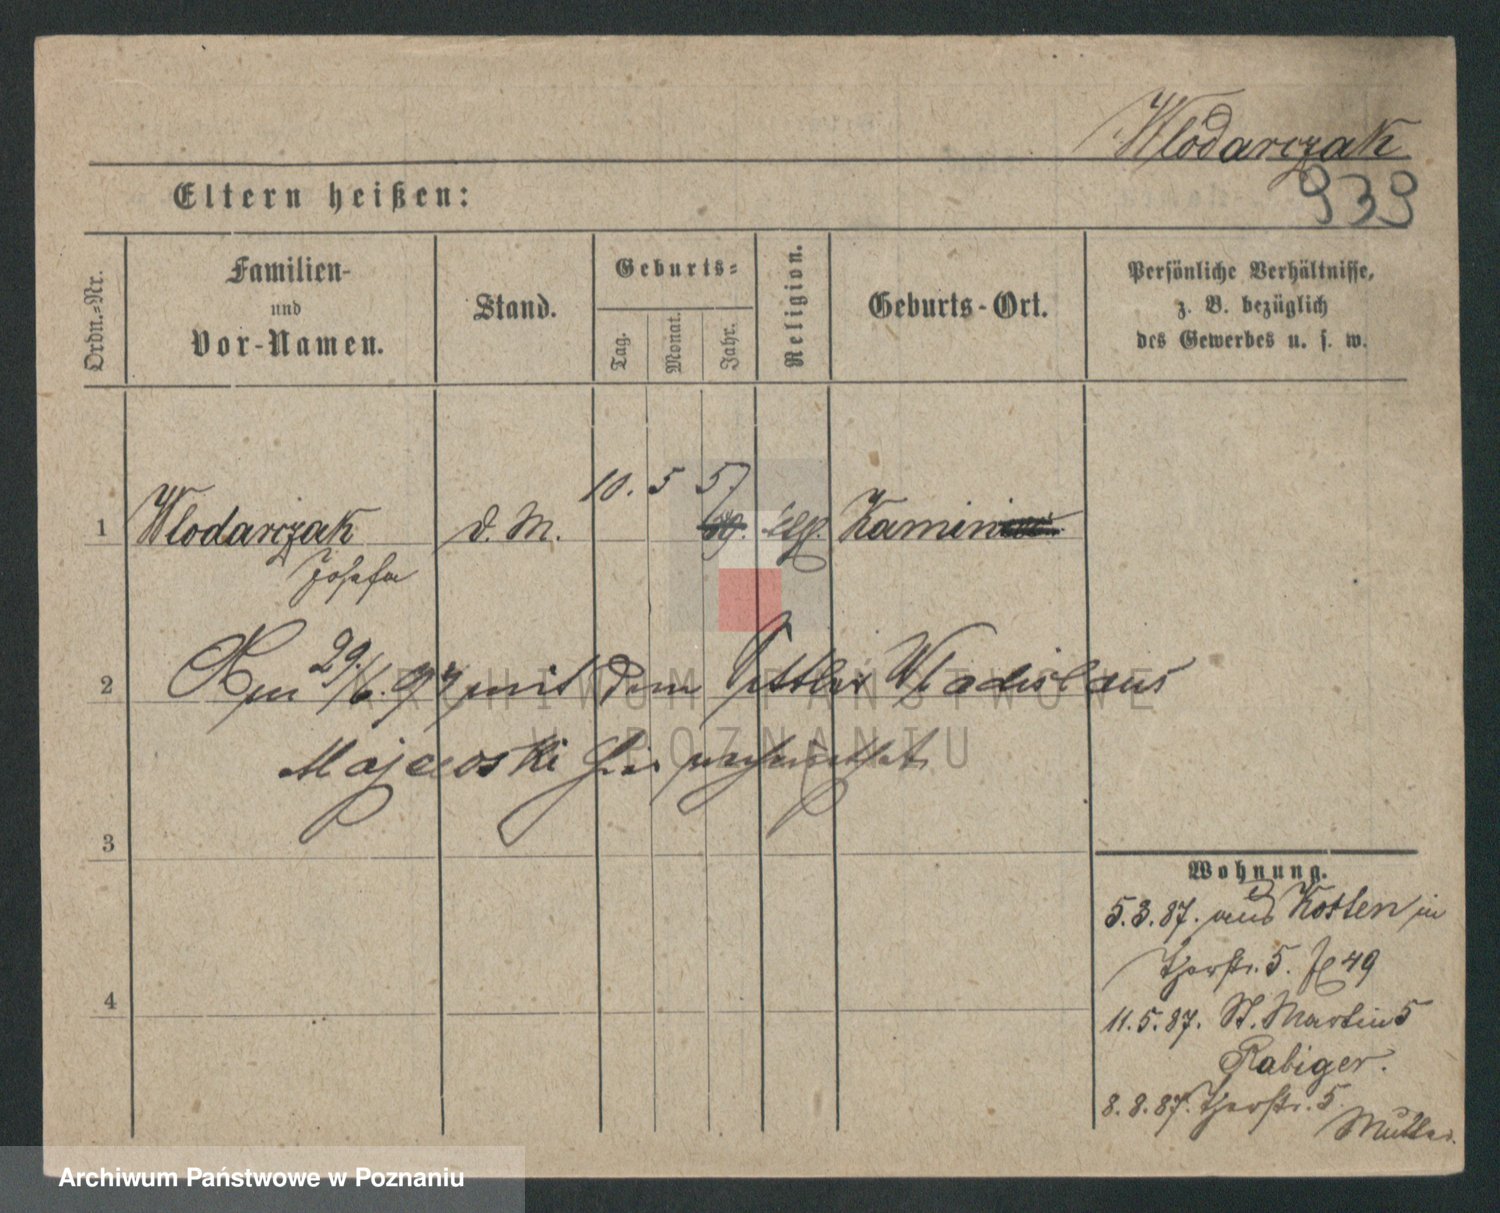 Wlodarczak
939
Eltern heißen:
Ordn.-Nr.
Familien-
und
Vor-Namen.
Stand.
Geburts-
Tag.
Monat.
Jahr.
Religion.
Geburts-Ort.
Persönliche Verhältnisse,
z. B. bezüglich
des Gewerbes u. s. w.
10. 5 57
1 Wlodarczak d. M. Kamin
Josefa
2 Am 29/6. 97 mit dem Wladislaus
Majewski hier verheirathet
3
4
Wohnung.
5.3.87. aus Kosten in
Thorstr. 5. 49
11.5.87. St. Martin 5
Rabiger.
8.8.87. Thorstr. 5.
Mutter
ARCHIWUM PAŃSTWOWE
W POZNANIU
Archiwum Państwowe w Poznaniu